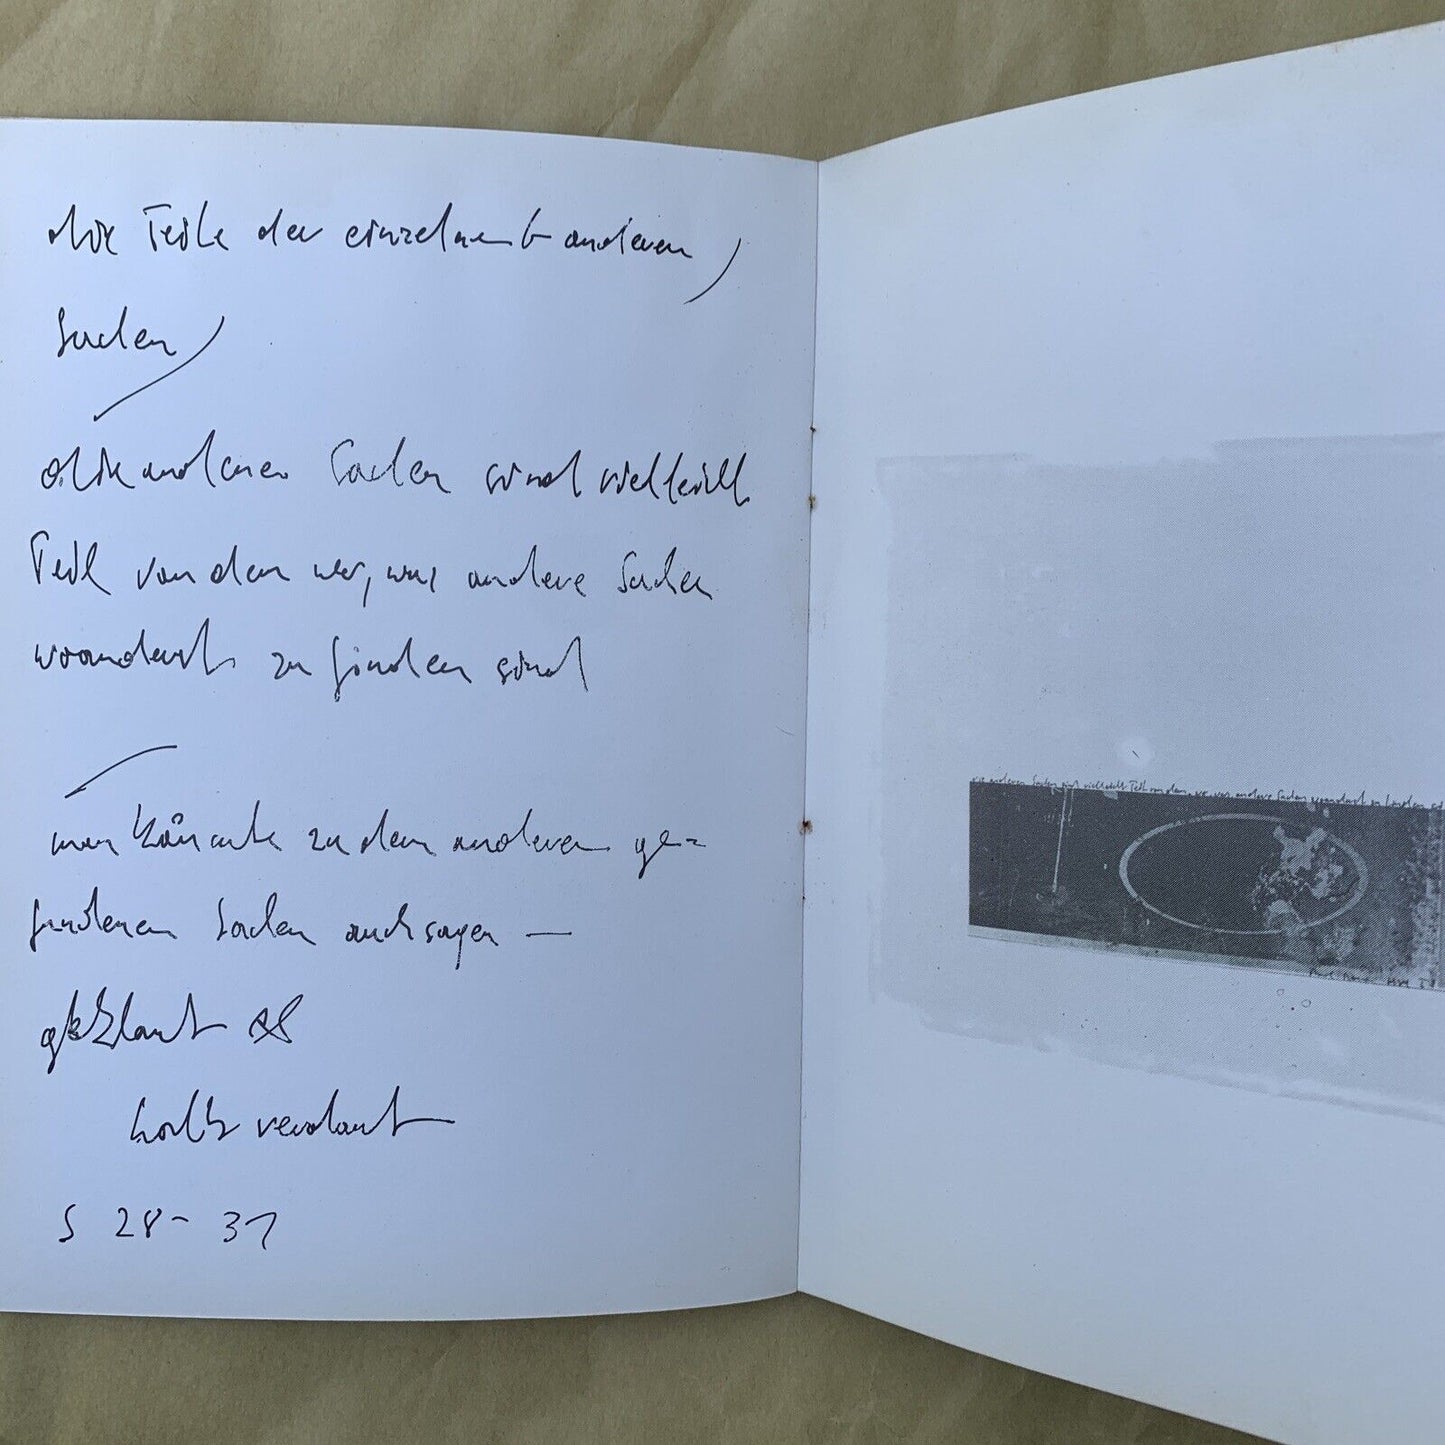 die Teile der einzelnen anderen
Sachen
die anderen Sachen sind vielleicht
Teil von dem wo, was andere Sachen
woanders zu finden sind
man könnte zu den anderen ge=
fundenen Sachen auch sagen —
geklaut
halb verdaut
S 28 - 31
die anderen Sachen sind vielleicht Teil von dem, was andere Sachen woanders zu finden